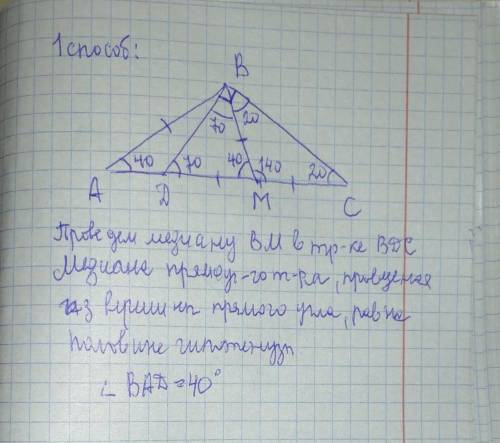 1 способ:
B
70 20
40 70 40 140 20
A D M C
Проведем медиану BM в тр-ке BDC
Медиана прямоуг-го т-ка, проведеная
из вершины прямого угла, равна
половине гипотенузы
∟ BAD = 40°